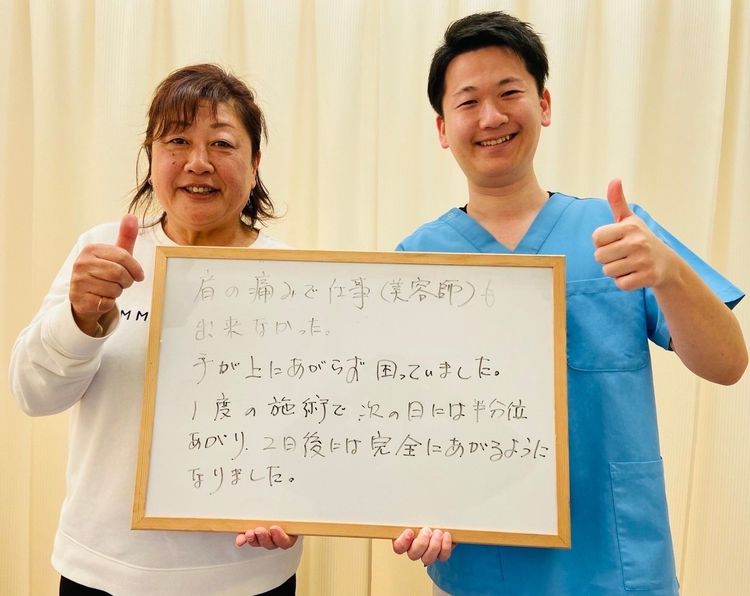 肩の痛みで仕事(美容師)も
出来なかった。
手が上にあがらず困っていました。
1度の施術で次の日には半分位
あがり、2日後には完全にあがるように
なりました。
MM